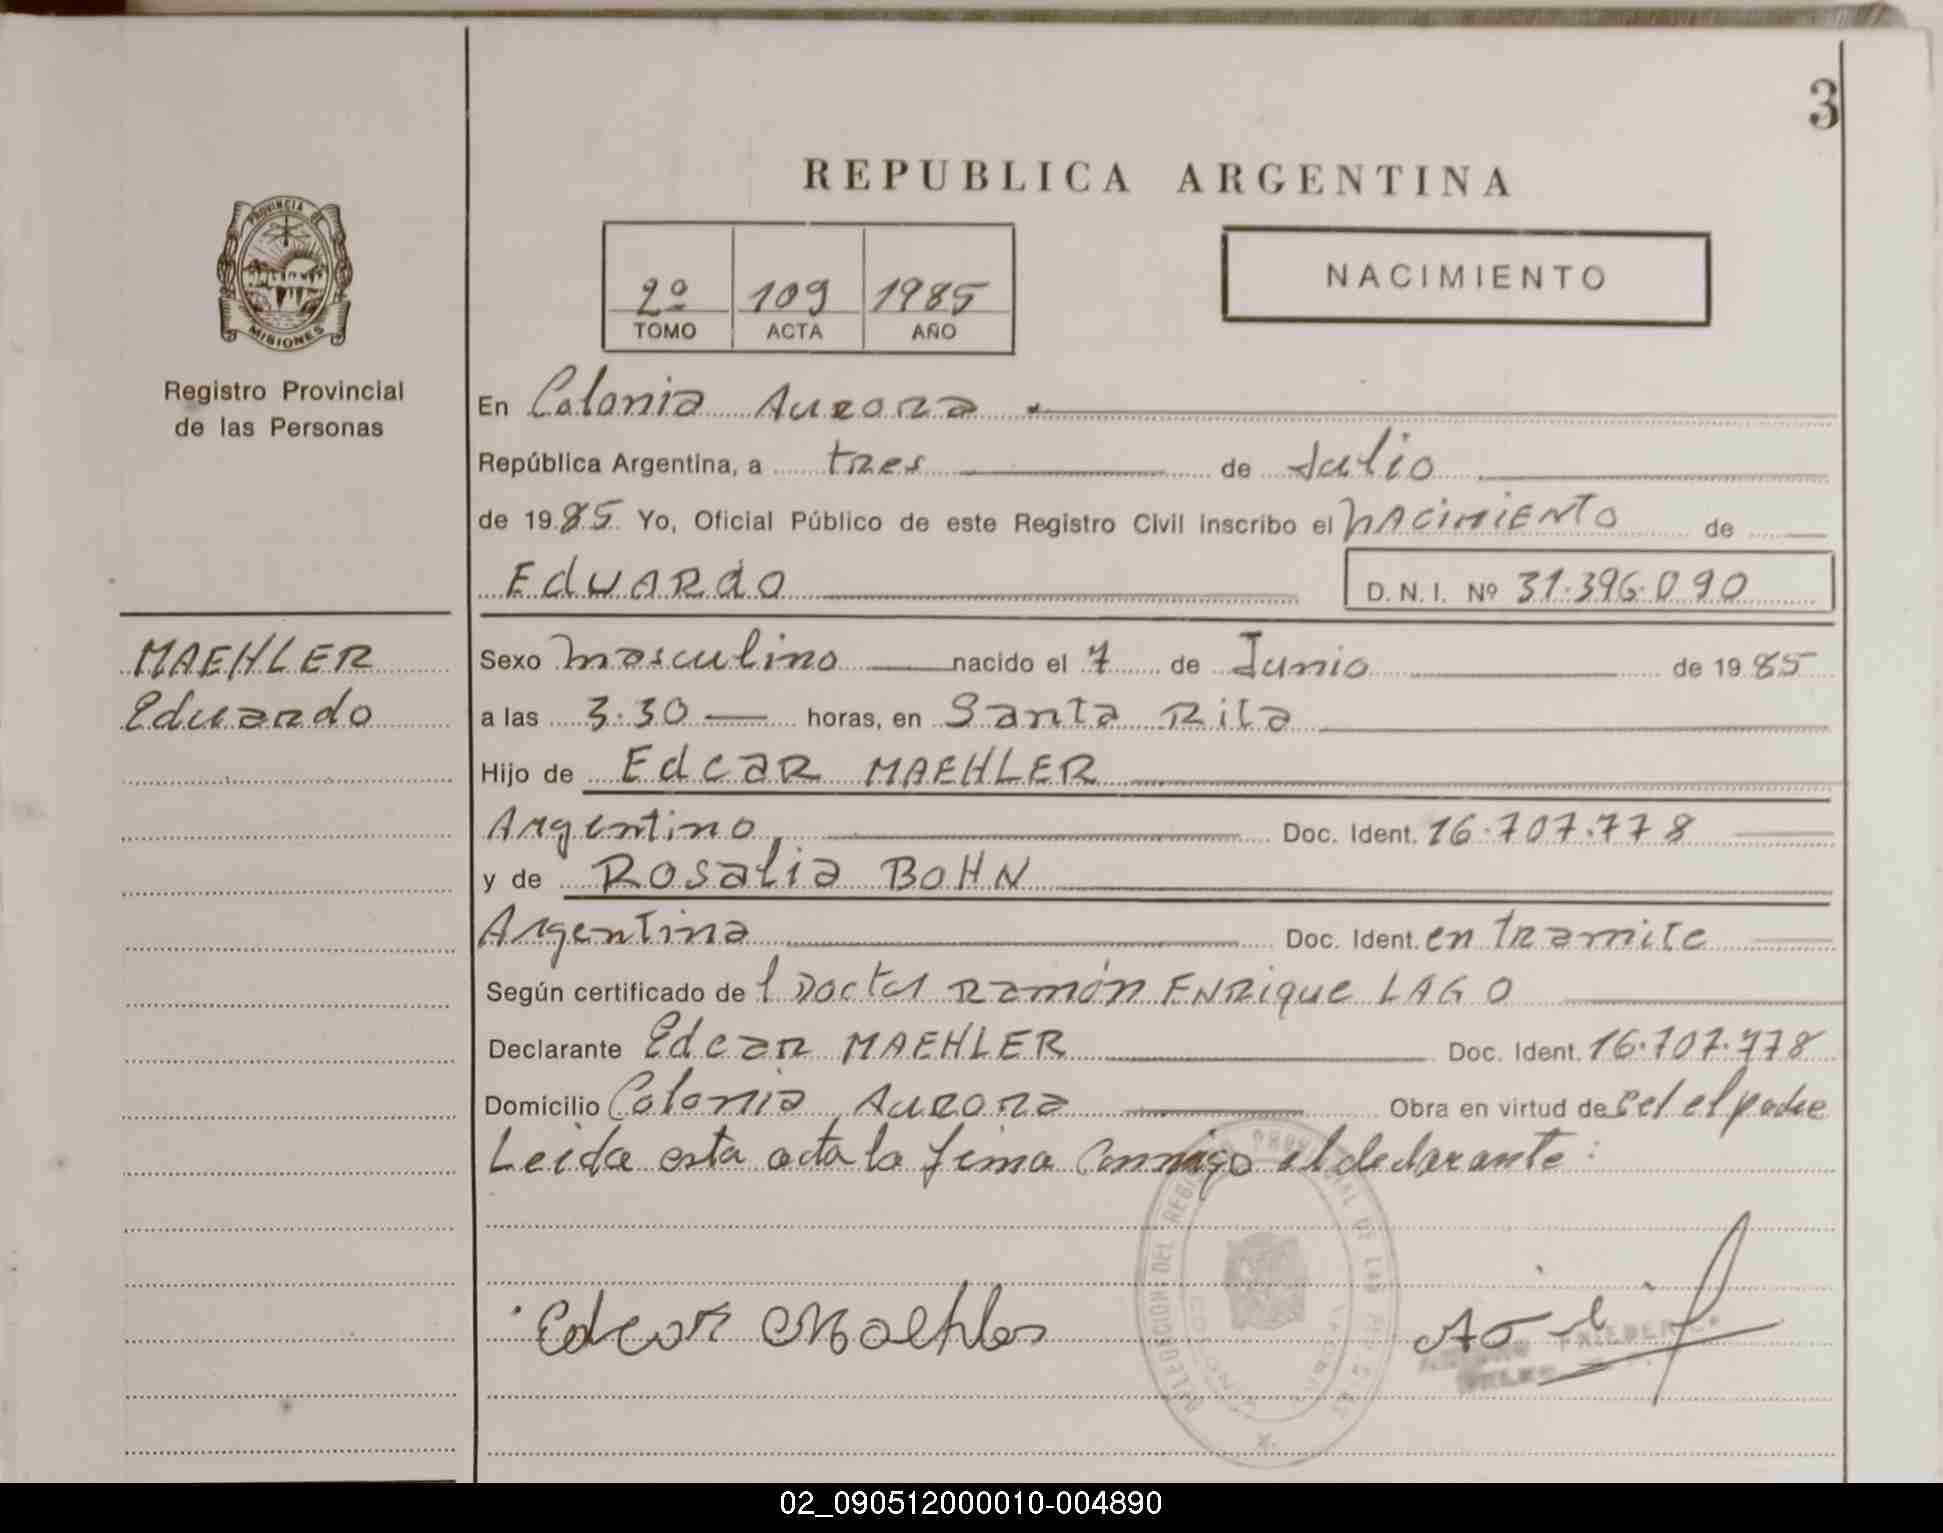 3
REPUBLICA ARGENTINA
PROVINCIA DE
MISIONES
Registro Provincial
de las Personas
2º 109 1985
TOMO ACTA AÑO
NACIMIENTO
En Colonia Aurora
República Argentina, a tres de Julio
de 1985 Yo, Oficial Público de este Registro Civil inscribo el nacimiento de
Eduardo D.N.I. Nº 31.396.090
MAEHLER
Eduardo
Sexo masculino nacido el 7 de Junio de 1985
a las 3.30 horas, en Santa Rita
Hijo de Edcar MAEHLER
Argentino Doc. Ident. 16.707.778
y de Rosalia BOHN
Argentina Doc. Ident. en tramite
Según certificado de l Doctor Ramón Enrique LAGO
Declarante Edcar MAEHLER Doc. Ident. 16.707.778
Domicilio Colonia Aurora Obra en virtud de ser el padre
Leida esta acta la firma conmigo el declarante:
Edcar Maehler
02_090512000010-004890